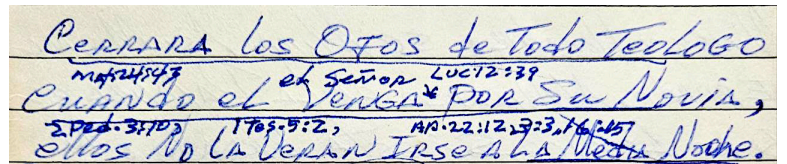 CERRARA los OJOS de Todo TEOLOGO
MAT.24:43 el SEÑOR LUC12:39
CUANDO el VENGA POR Su NOVIA,
2Ped.3:10, 1Tes.5:2, AP.22:12,3:3,16:15
ellos NO LA VERAN IRSE A LA Media Noche.